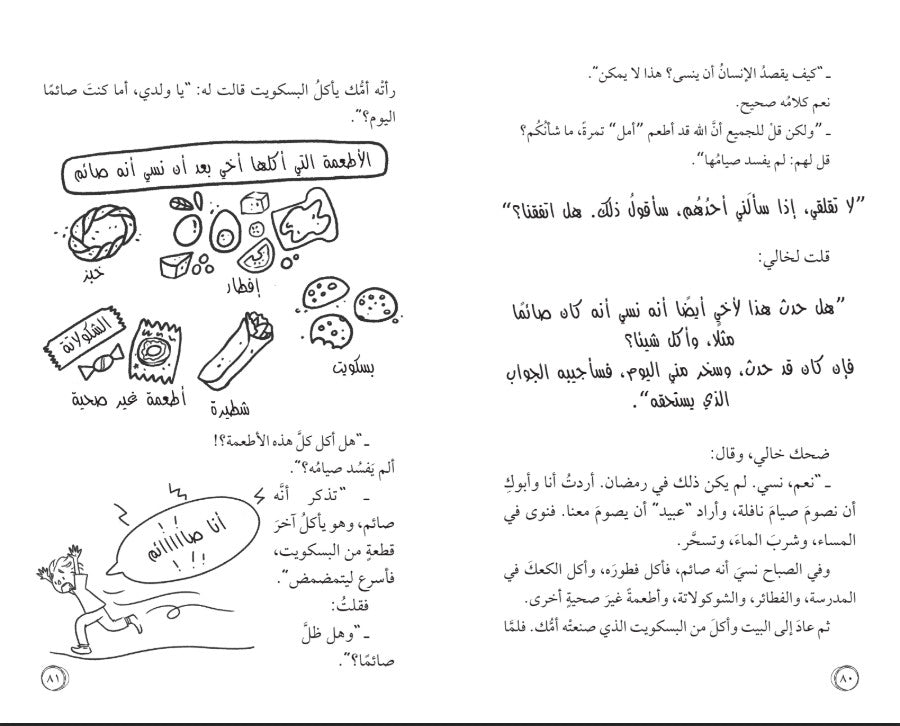 ـ “كيف يقصدُ الإنسانُ أن ينسى؟ هذا لا يمكن”.
نعم كلامُه صحيح.
ـ “ولكن قلْ للجميع أنَّ الله قد أطعم “أمل” تمرةً، ما شأنُكُم؟
قل لهم: لم يفسد صيامُها”.
“لا تقلقي، إذا سألَني أحدُهُم، سأقولُ ذلك. هل اتفقنا؟”
قلت لخالي:
“هل حدث هذا لأخي أيضًا أنه نسي أنه كان صائمًا
مثلًا، وأكل شيئا؟
فإن كان قد حدث، وسخر مني اليوم، فسأجيبه الجواب
الذي يستحقه”.
ضحك خالي، وقال:
ـ “نعم، نسي. لم يكن ذلك في رمضان. أردتُ أنا وأبوكِ
أن نصومَ صيامَ نافلة، وأراد “عبيد” أن يصومَ معنا. فنوى في
المساء، وشربَ الماءَ، وتسحَّر.
وفي الصباح نسيَ أنه صائم، فأكل فطورَه، وأكل الكعكَ في
المدرسة، والفطائر، والشوكولاتة، وأطعمةً غيرَ صحيةٍ أخرى.
ثم عادَ إلى البيت وأكلَ من البسكويت الذي صنعتْه أمُّك. فلمَّا
٨٠
رأتْه أمُّك يأكلُ البسكويت قالت له: “يا ولدي، أما كنتَ صائمًا
اليوم؟”.
الأطعمة التي أكلها أخي بعد أن نسي أنه صائم
خبز
إفطار
بسكويت
الشكولاتة
أطعمة غير صحية
شطيرة
ـ “هل أكل كلَّ هذه الأطعمة؟!
ألم يَفسُد صيامُه؟”.
ـ “تذكر أنَّه
صائم، وهو يأكلُ آخرَ
قطعةٍ من البسكويت،
فأسرع ليتمضمض”.
فقلتُ:
ـ “وهل ظلَّ
صائمًا؟”.
أنا صاااااائم
!!
!!!
٨١